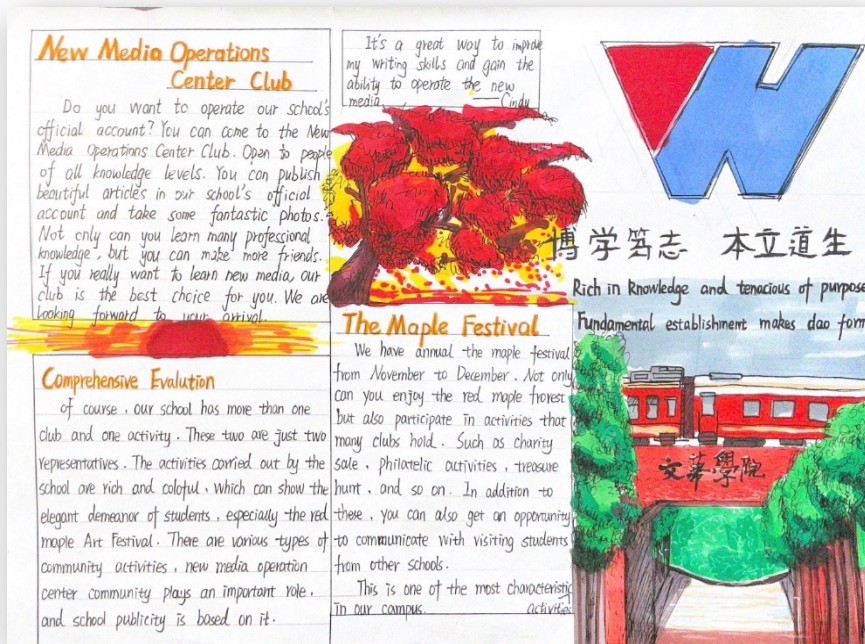 New Media Operations
Center Club
Do you want to operate our school's
official account? You can come to the New
Media Operations Center Club. Open to people
of all knowledge levels. You can publish
beautiful articles in our school's official
account and take some fantastic photos.
Not only can you learn many professional
knowledge, but you can make more friends.
If you really want to learn new media, our
club is the best choice for you. We are
looking forward to your arrival.
Comprehensive Evalution
Of course, our school has more than one
club and one activity. These two are just two
representatives. The activities carried out by the
school are rich and coloful, which can show the
elegant demeanor of students, especially the red
maple Art Festival. There are various types of
community activities, new media operation
center community plays an important role,
and school publicity is based on it.
It's a great way to improve
my writing skills and gain the
ability to operate the new
media. —— Cindy
The Maple Festival
We have annual the maple festival
from November to December. Not only
can you enjoy the red maple frorest
but also participate in activities that
many clubs hold. Such as charity
sale, philatelic activities, treasure
hunt, and so on. In addition to
these, you can also get an opportunity
to communicate with visiting students
from other schools.
This is one of the most characteristic
in our campus. activities
W
博学笃志 本立道生
Rich in knowledge and tenacious of purpose
Fundamental establishment makes dao form
文華學院